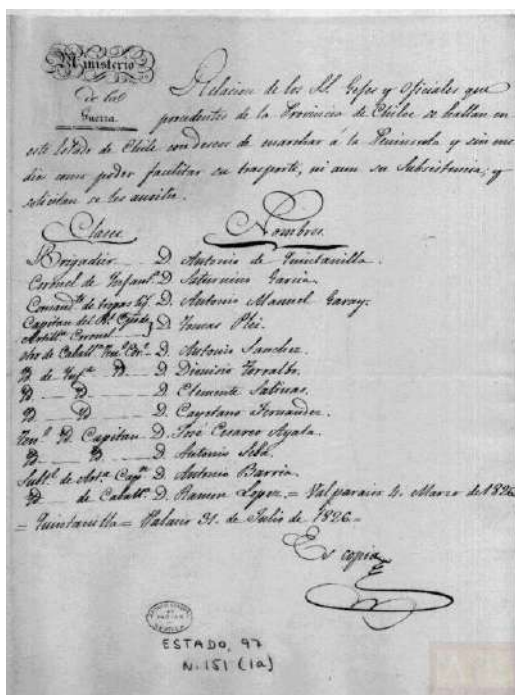 Ministerio
de la
Guerra.
Relacion de los SS. Gefes y Oficiales que
procedentes de la Provincia de Chiloe se hallan en
este Estado de Chile con deseos de marchar á la Peninsula y sin me
dio como poder facilitar su trasporte, ni aun su Subsistencia; y
solicitan se les auxilie.
Clases Nombres
Brigadier D. Antonio de Quintanilla.
Coronel de Infantª D. Saturnino Garcia.
Comandte de tropas D. Antonio Manuel Garay.
Capitan del Rl
Artillª Coronel D. Tomas Plei.
de Caballª D. Antonio Sanchez.
Yd de Infª Yd D. Dionisio Torralbo.
Yd Yd D. Clemente Salinas.
Yd Yd D. Cayetano Fernandez.
Tene Yd Capitan D. José Cesareo Ayala.
Yd Yd D. Antonio
Subte de Artª Capn D. Antonio Barria.
Yd de Caballª D. Ramon Lopez. = Valparaiso 4. Marzo de 1826
= Quintanilla = Palacio 31. de Julio de 1826 =
Es copia
ESTADO, 97
N. 151 (1a)